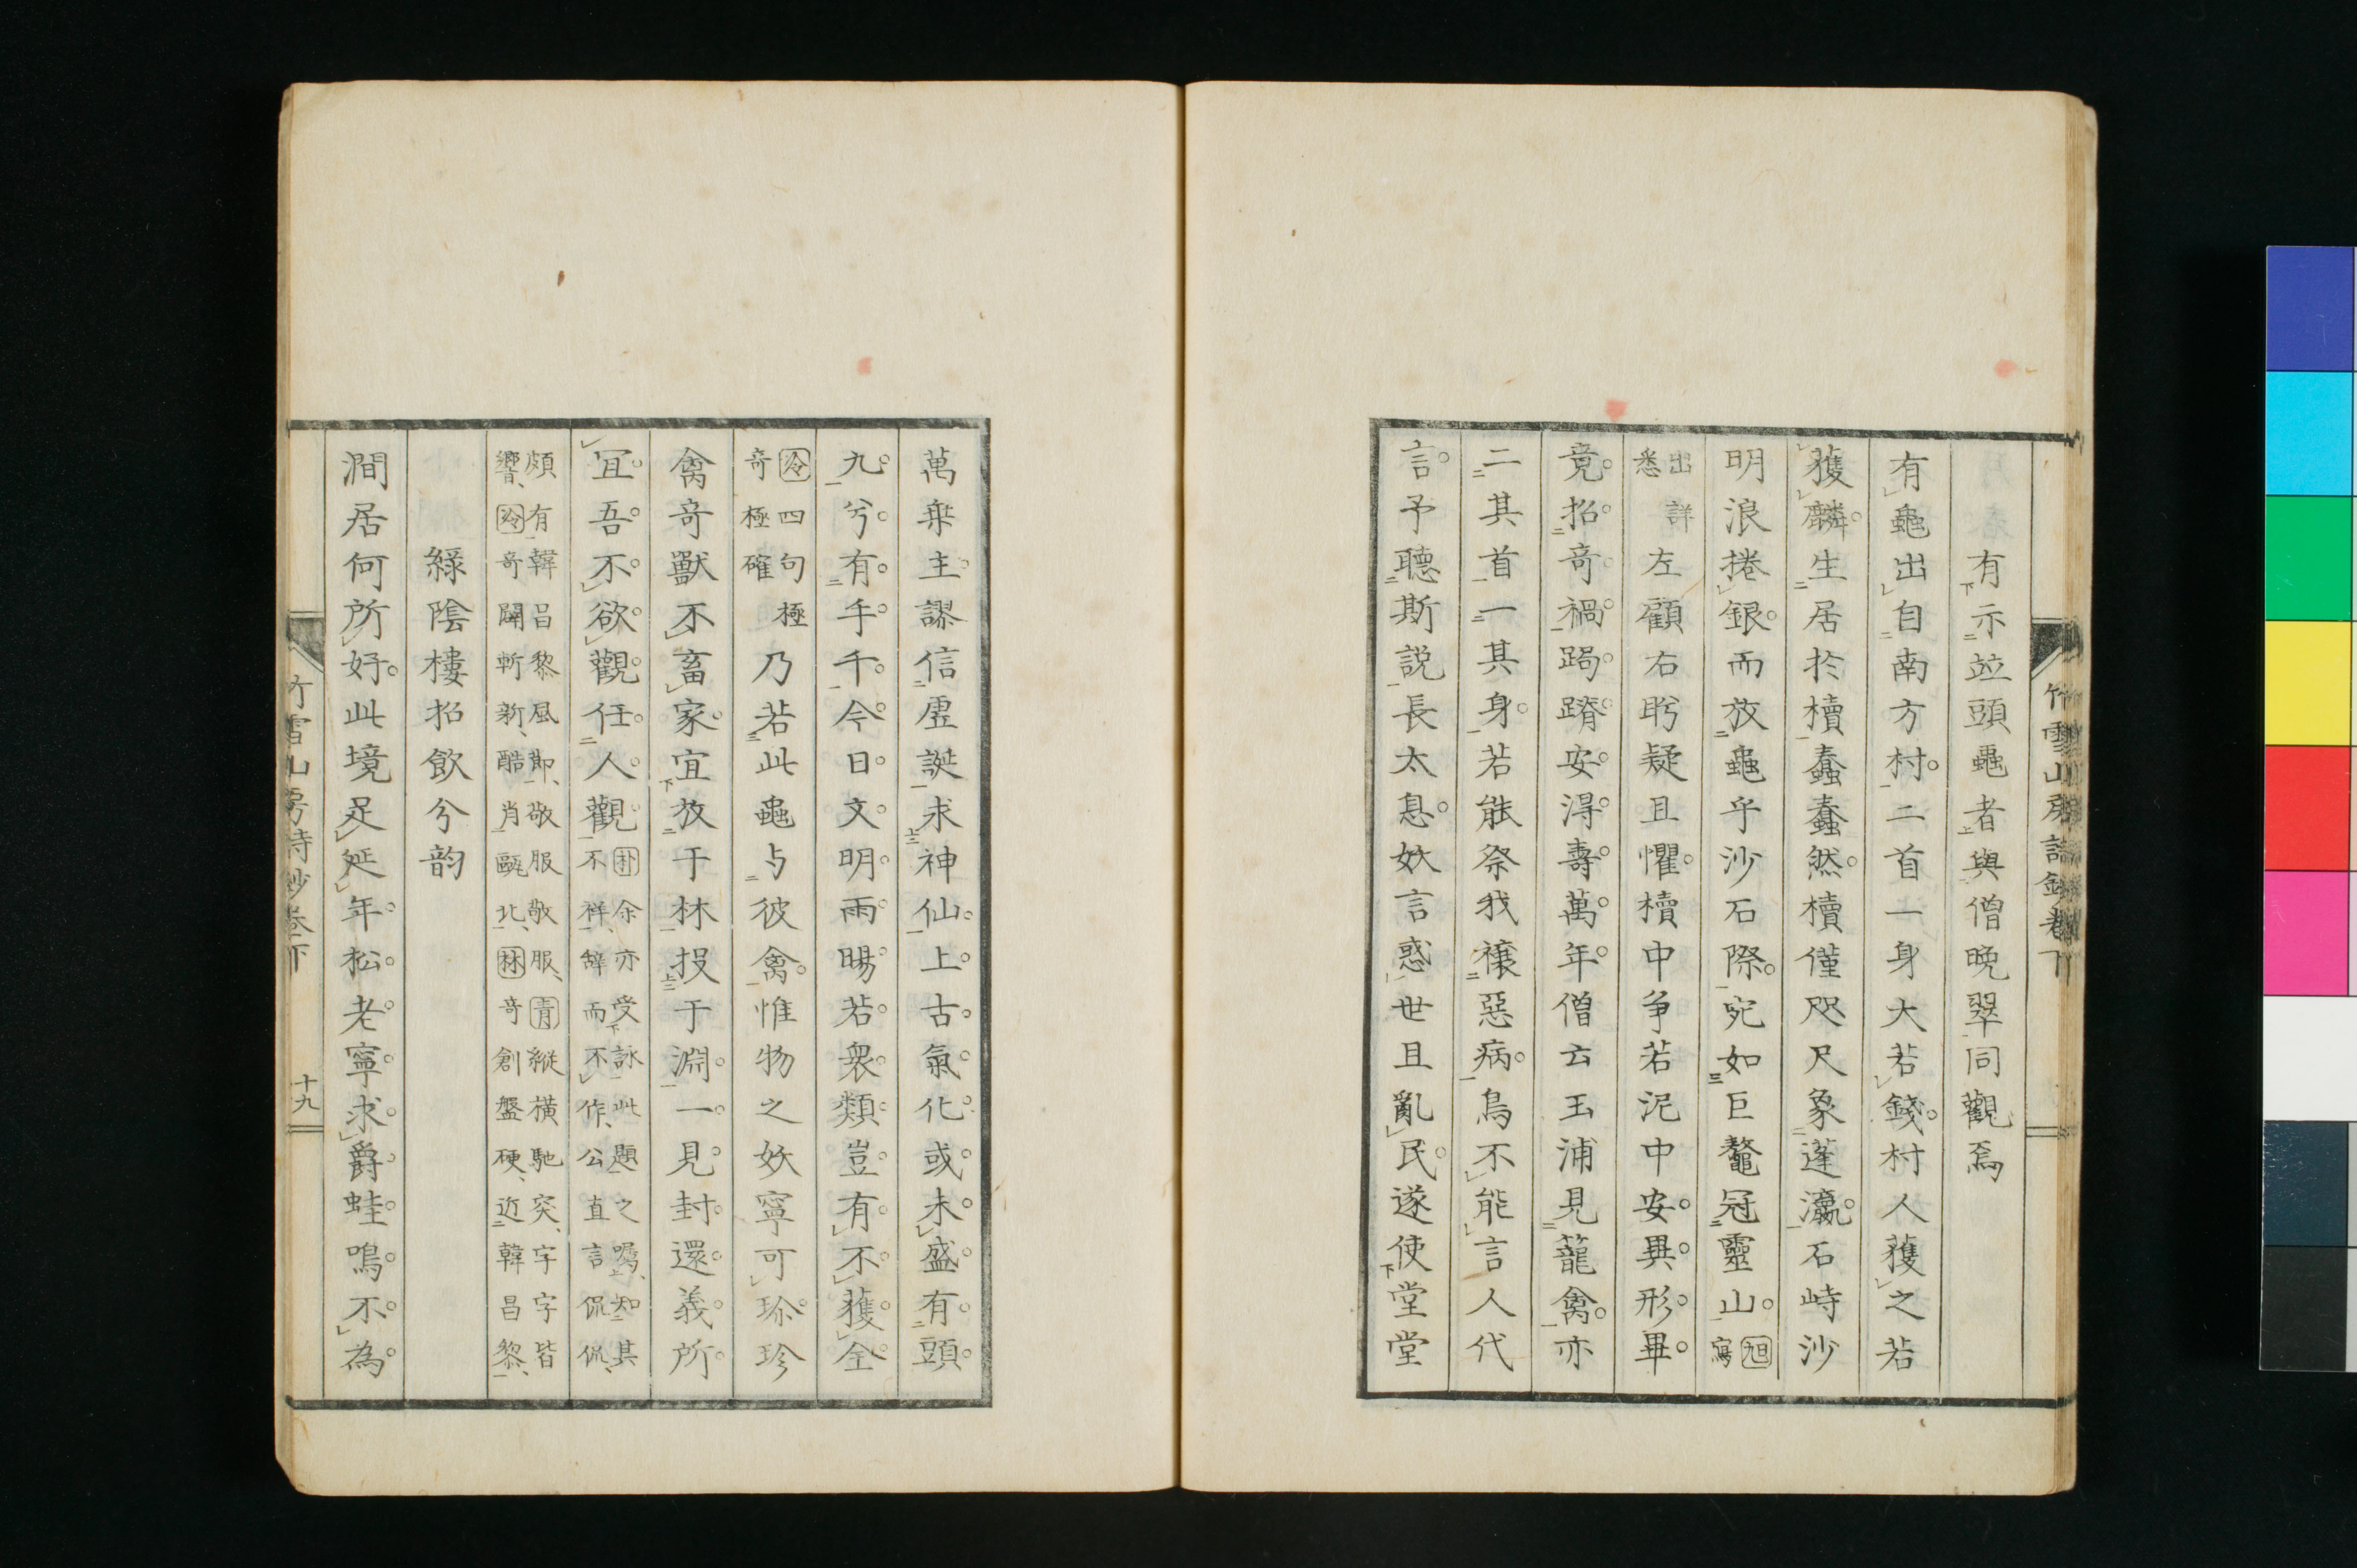 有示竝頭龜者與僧晩翠同觀焉
有龜出自南方村二首一身大若錢村人獲之若
獲麟生居於櫝蠢蠢然櫝僅咫尺象蓬瀛石峙沙
明浪捲銀而放龜乎沙石際宛如巨鼇冠靈山旭寫
出詳悉左顧右眄疑且懼櫝中争若泥中安異形畢
竟招竒禍跼蹐安得壽萬年僧云玉浦見蘢禽亦
二其首一其身若能祭我禳惡病鳥不能言人代
言予聽斯説長太息妖言惑世且亂民遂使堂堂
竹雪山房詩鈔卷下
萬乗主謬信虚誕求神仙上古氣化或未盛有頭
九兮有手千今日文明雨暘若衆類豈有不獲全
冷四句極竒極確乃若此龜与彼禽惟物之妖寧可珎珍
禽竒獸不畜家宜放于林投于淵一見封還義所
冝吾不欲觀任人觀朴余亦受詠此題之囑知其不祥辭而不作公直言侃侃
頗有韓昌黎風即敬服敬服青縱横馳突字字皆
響冷竒闢斬新酷肖甌北林竒創盤硬近韓昌黎
緑陰樓招飲分韵
澗居何所好此境足延年松老寧求爵蛙鳴不為
竹雪山房詩鈔卷下
十九